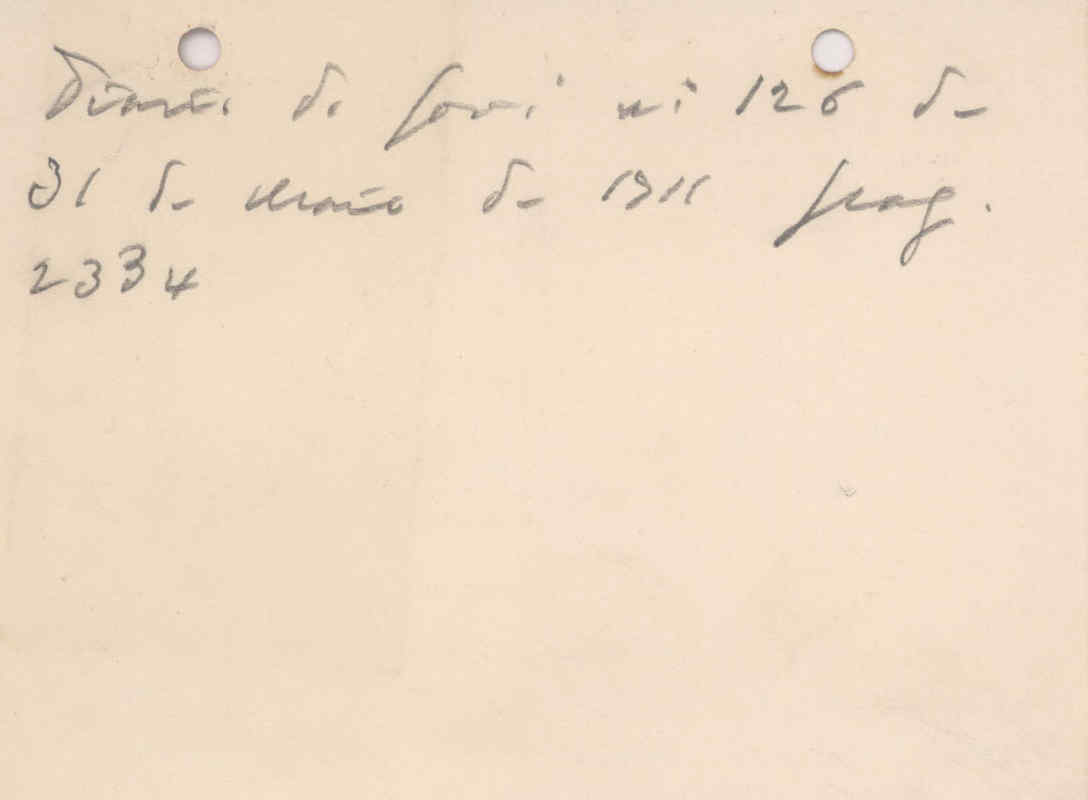 Diario do Gov. nº 126 de
31 de Maio de 1911 pag.
2334